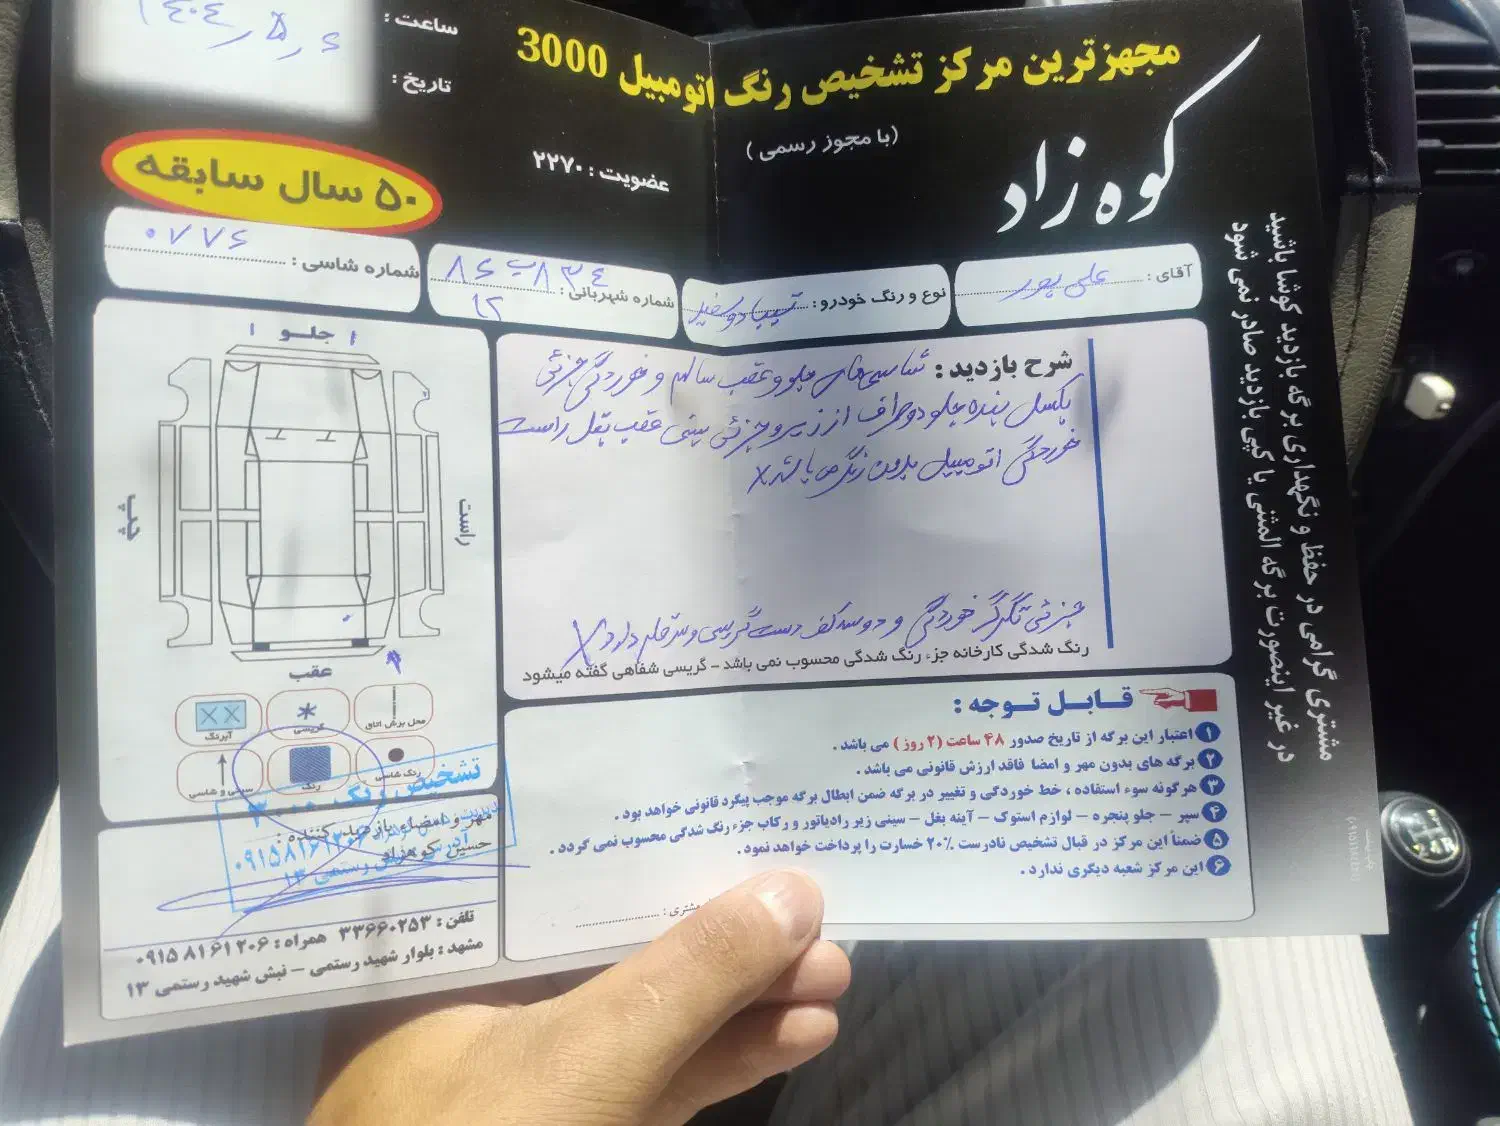 مجهزترین مرکز تشخیص رنگ اتومبیل 3000
کوه زاد
(با مجوز رسمی)
عضویت : ۲۲۷۰
ساعت :
۱۴۰۴٫۵٫۶
تاریخ :
۵۰ سال سابقه
آقای : علی پور
نوع و رنگ خودرو : تیبا دو سفید
شماره شهربانی : ۸۶ ب ۸۳۴
۱۲
شماره شاسی : ۰۷۷۶
شرح بازدید : شاسی های جلو و عقب سالم و خوردگی جزئی
پکسل پنده جلو دو طرف از زیر و جزئی سینی عقب بغل راست
خوردگی اتومبیل بدون رنگ می باشد x
جزئی تگرگ خوردگی و دوسه لکه دست گریسی و سر قلم دارد x
رنگ شدگی کارخانه جزء رنگ شدگی محسوب نمی باشد - گریسی شفاهی گفته میشود
قابل توجه :
۱ اعتبار این برگه از تاریخ صدور ۴۸ ساعت (۲ روز) می باشد .
۲ برگه های بدون مهر و امضا فاقد ارزش قانونی می باشد .
۳ هرگونه سوء استفاده ، خط خوردگی و تغییر در برگه ضمن ابطال برگه موجب پیگرد قانونی خواهد بود .
۴ سپر - جلو پنجره - لوازم استوک - آینه بغل - سینی زیر رادیاتور و رکاب جزء رنگ شدگی محسوب نمی گردد .
۵ ضمناً این مرکز در قبال تشخیص نادرست ۲۰٪ خسارت را پرداخت خواهد نمود .
۶ این مرکز شعبه دیگری ندارد .
مشتری :
جلو
چپ
راست
عقب
محل برش اتاق
گریسی
آبرنگ
رنگ شاسی
رنگ
سینی و شاسی
تشخیص رنگ ۳۰۰۰
مهر و امضاء بازدید کننده :
حسین کوهزاد
۰۹۱۵۸۱۶۱۲۰۶
رستمی ۱۳
تلفن : ۳۳۶۶۰۲۵۳ همراه : ۰۹۱۵۸۱۶۱۲۰۶
مشهد : بلوار شهید رستمی - نبش شهید رستمی ۱۳
مشتری گرامی در حفظ و نگهداری برگه بازدید کوشا باشید
در غیر اینصورت برگه المثنی یا کپی بازدید صادر نمی شود